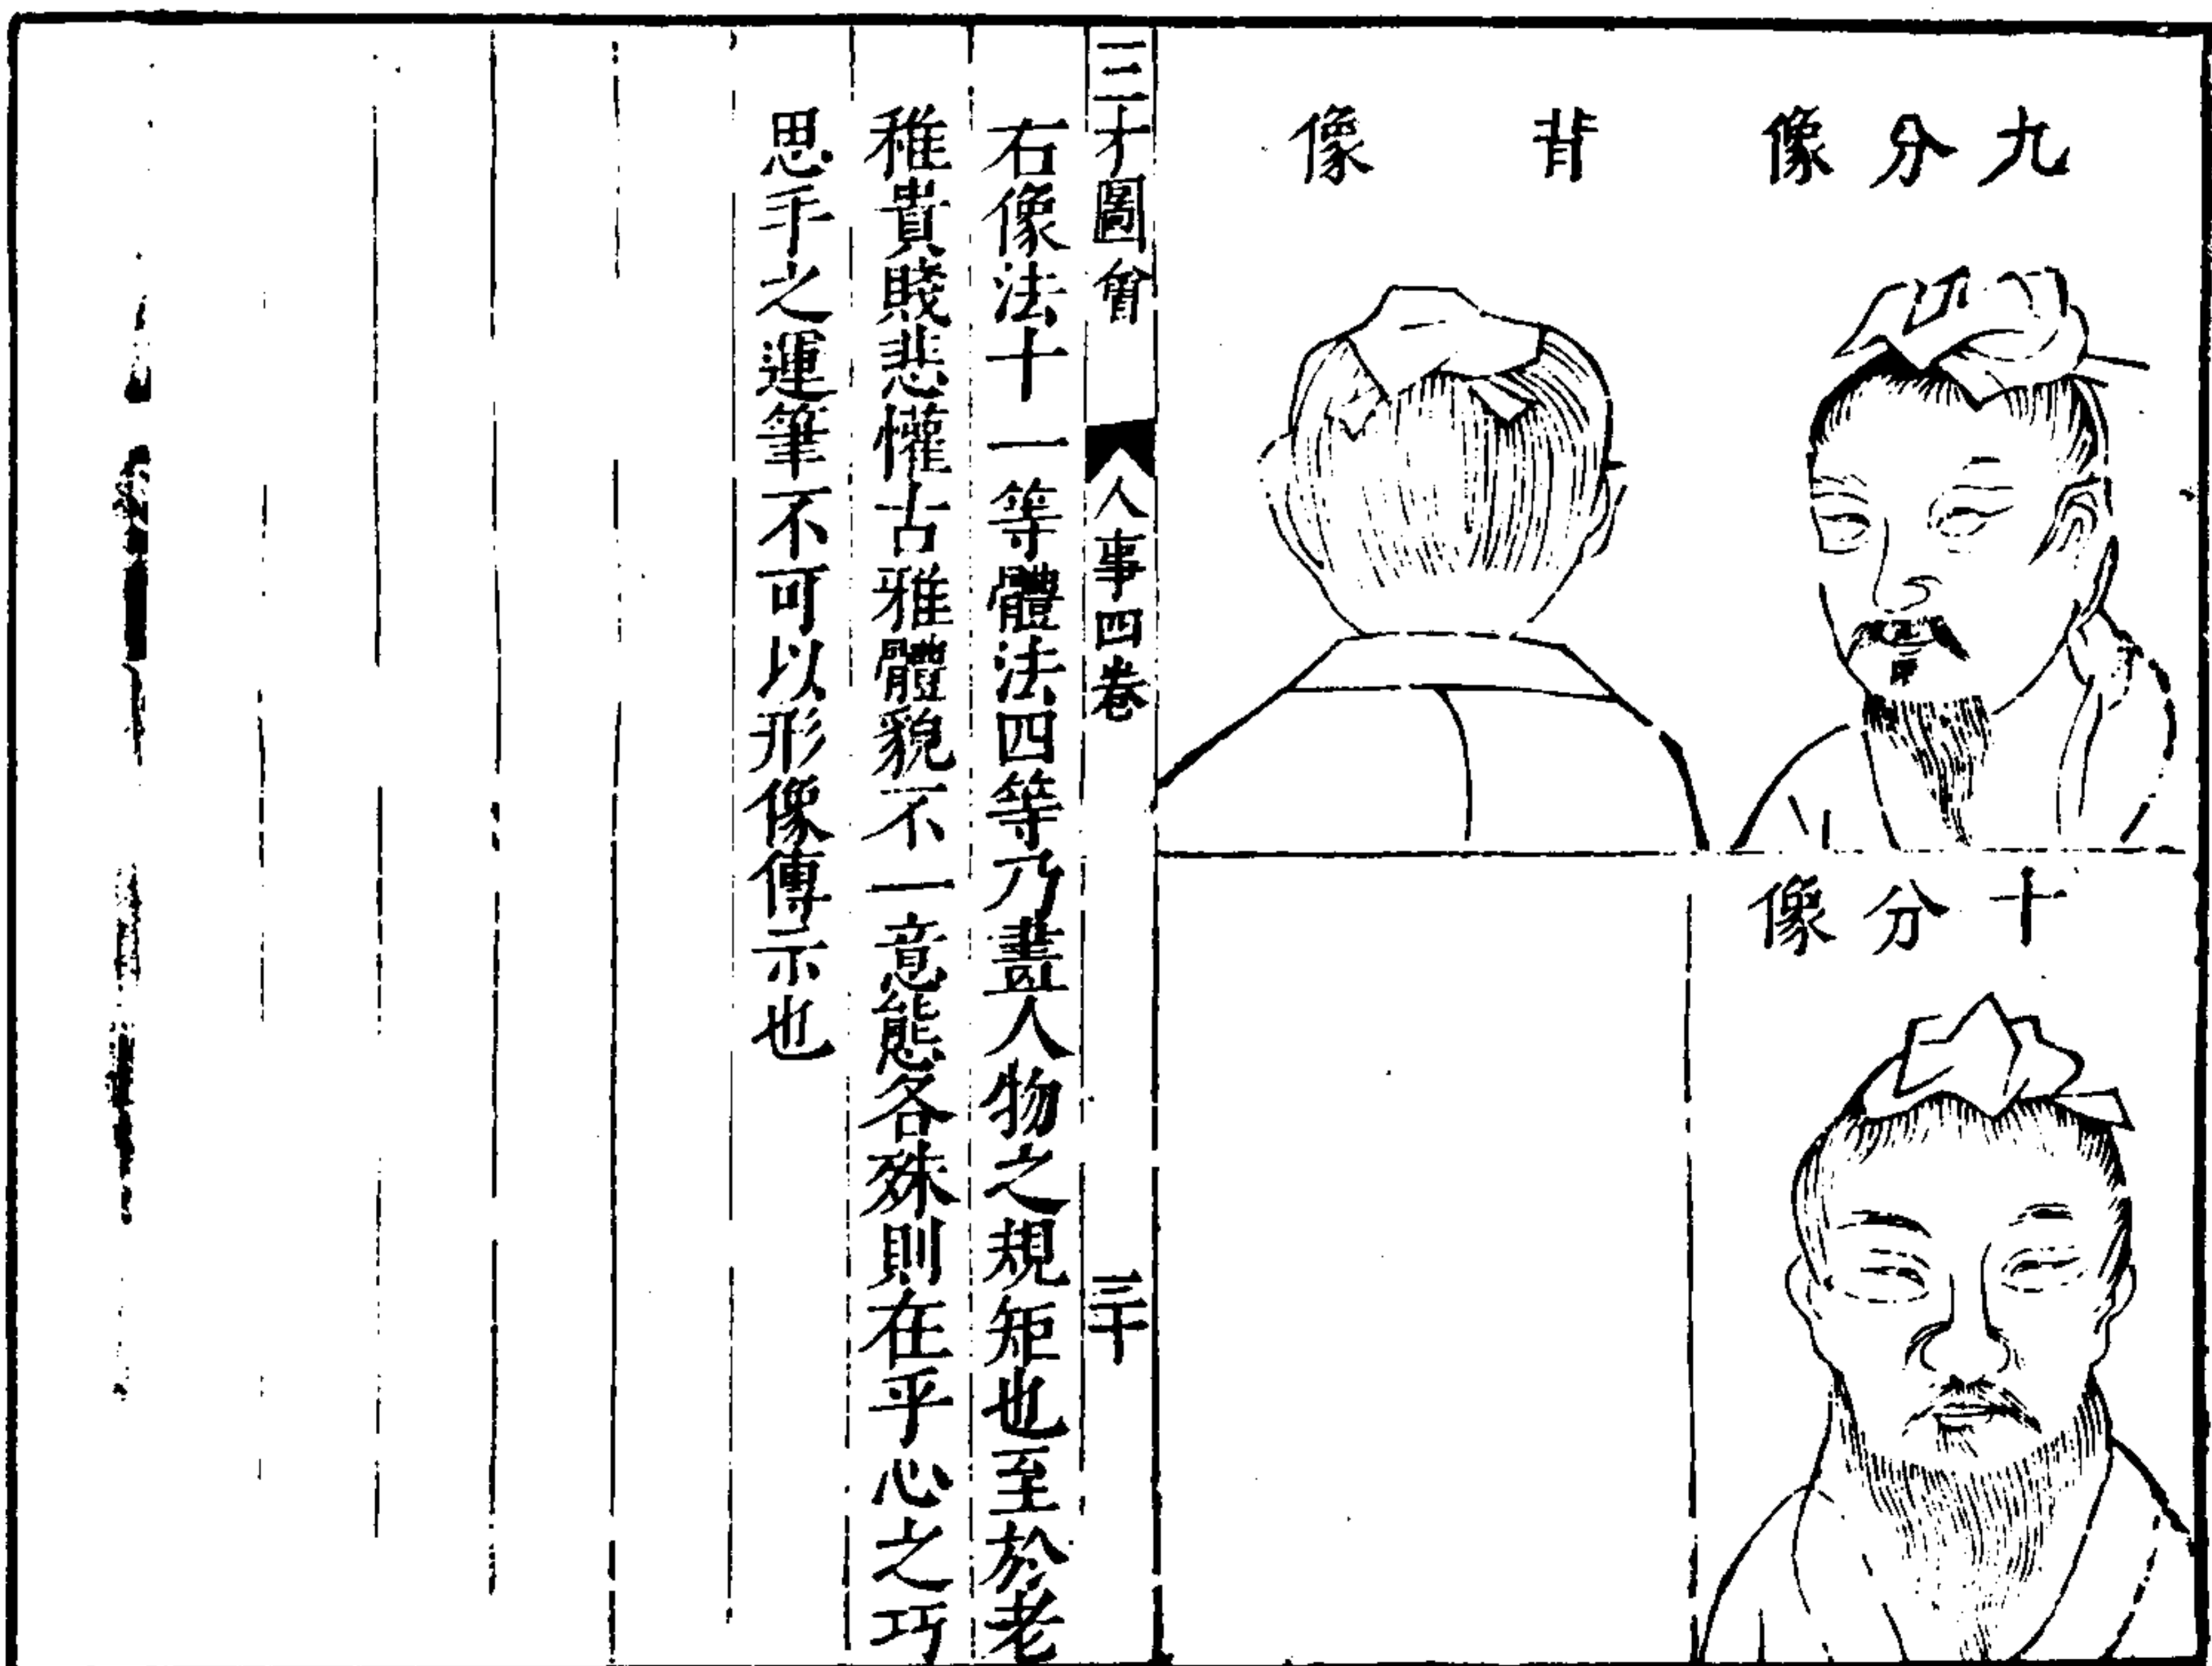 九分像
背像
十分像
三才圖會 人事四卷 三十
右像法十一等體法四等乃盡人物之規矩也至於老
稚貴賤悲懽古雅體貌不一意態各殊則在乎心之巧
思手之運筆不可以形像傳示也